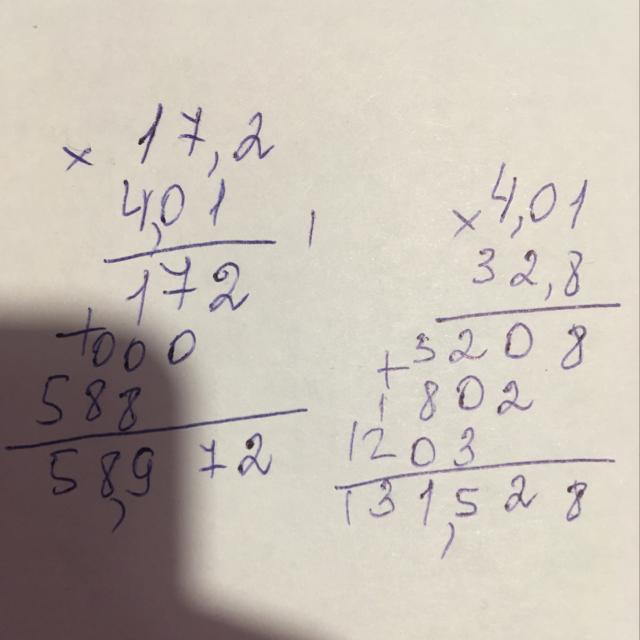 × 17,2
4,01
172
+000
588
58,972
×4,01
32,8
+3208
802
1203
131,528